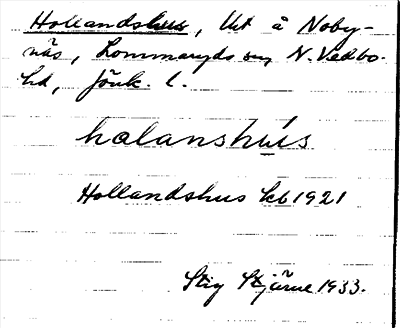 Hollandshus, lht å Noby-
näs, Lommaryds sn N. Vedbo
hd, Jönk. l.
halanshús
Hollandshus kb 1921
Stig Stjärne 1933.